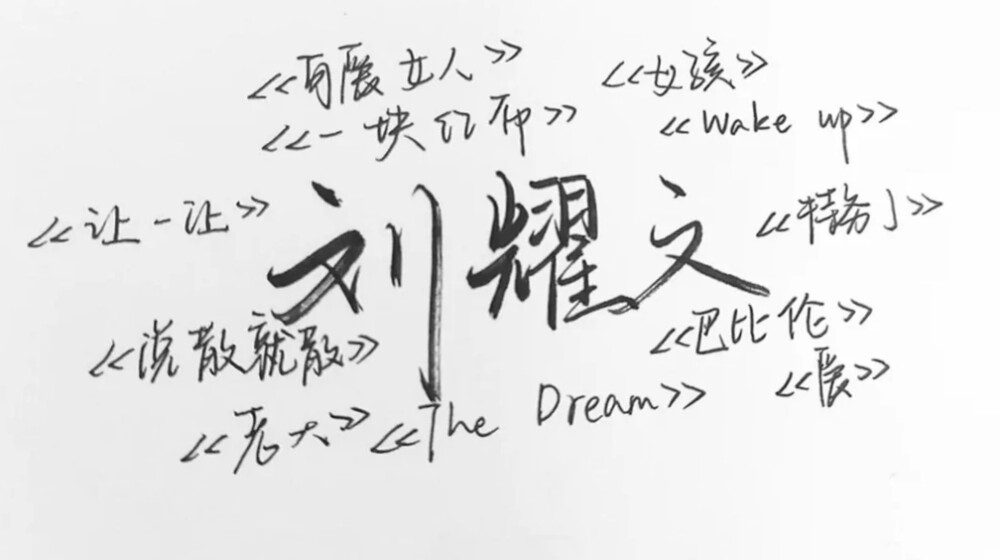 《可爱女人》 《女孩》
《一块红布》 《Wake up》
《让一让》 刘耀文 《特务J》
《说散就散》 《巴比伦》
《爱》
《老大》 《The Dream》